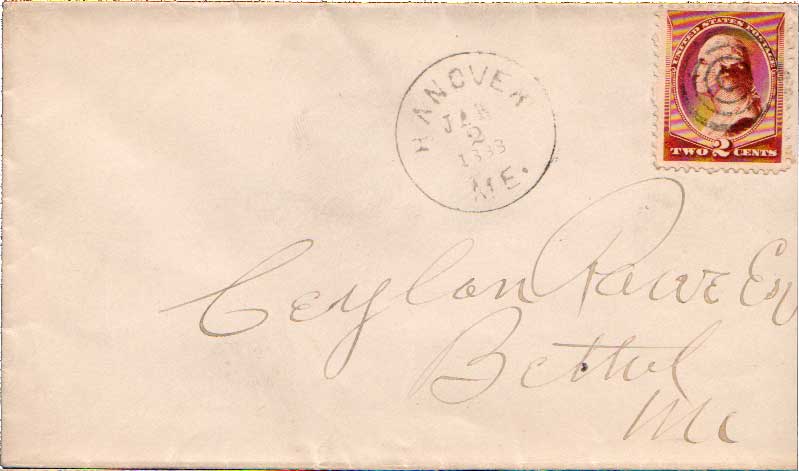 UNITED STATES POSTAGE
TWO 2 CENTS
HANOVER
JAN
2
1888
ME.
Ceylon Rowe Esq
Bethel
Me